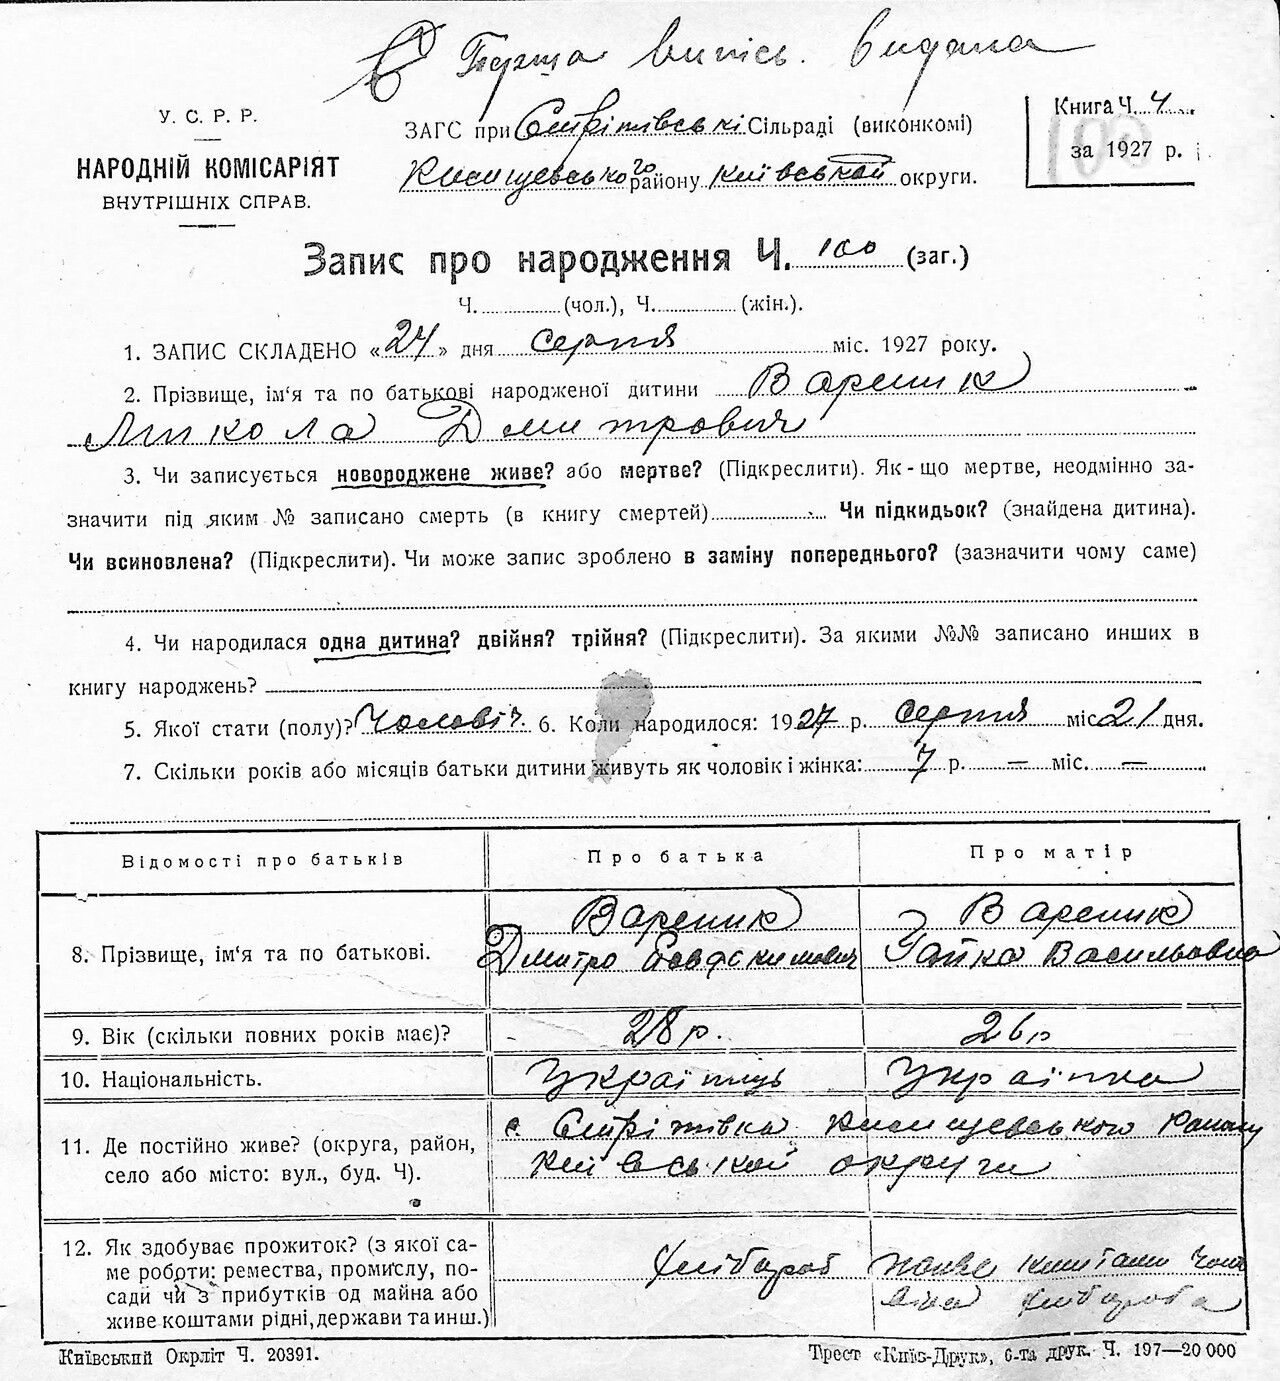 Перша випись. видана
У. С. Р. Р.
НАРОДНІЙ КОМІСАРІЯТ
ВНУТРІШНІХ СПРАВ.
ЗАГС при Стрітівські Сільраді (виконкомі)
Кисищевського району Київської округи.
Книга Ч. 4
за 1927 р.
100
Запис про народження Ч. 100 (заг.)
Ч. (чол.), Ч. (жін.).
1. ЗАПИС СКЛАДЕНО «24» дня серпня міс. 1927 року.
2. Прізвище, ім'я та по батькові народженої дитини Вареник
Микола Дмитрович
3. Чи записується новороджене живе? або мертве? (Підкреслити). Як-що мертве, неодмінно за-
значити під яким № записано смерть (в книгу смертей) Чи підкидьок? (знайдена дитина).
Чи всиновлена? (Підкреслити). Чи може запис зроблено в заміну попереднього? (зазначити чому саме)
4. Чи народилася одна дитина? двійня? трійня? (Підкреслити). За якими №№ записано инших в
книгу народжень?
5. Якої стати (полу)? Чоловіч. 6. Коли народилося: 1927 р. серпня міс 21 дня.
7. Скільки років або місяців батьки дитини живуть як чоловік і жінка: 7 р. — міс. —
Відомості про батьків Про батька Про матір
8. Прізвище, ім'я та по батькові. Вареник Вареник
Дмитро Євдокимович Гапка Васильовна
9. Вік (скільки повних років має)? 28 р. 26 р
10. Національність. Українць Українка
11. Де постійно живе? (округа, район,
село або місто: вул., буд. Ч).
с. Стрітівка Кисищевського району
Київської округи
12. Як здобуває прожиток? (з якої са-
ме роботи: ремества, промислу, по-
сади чи з прибутків од майна або
живе коштами рідні, держави та инш.)
хлібороб живе коштами чоло
віка хлібороба
Київський Окрліт Ч. 20391.
Трест «Київ-Друк», 6-та друк. Ч. 197—20 000